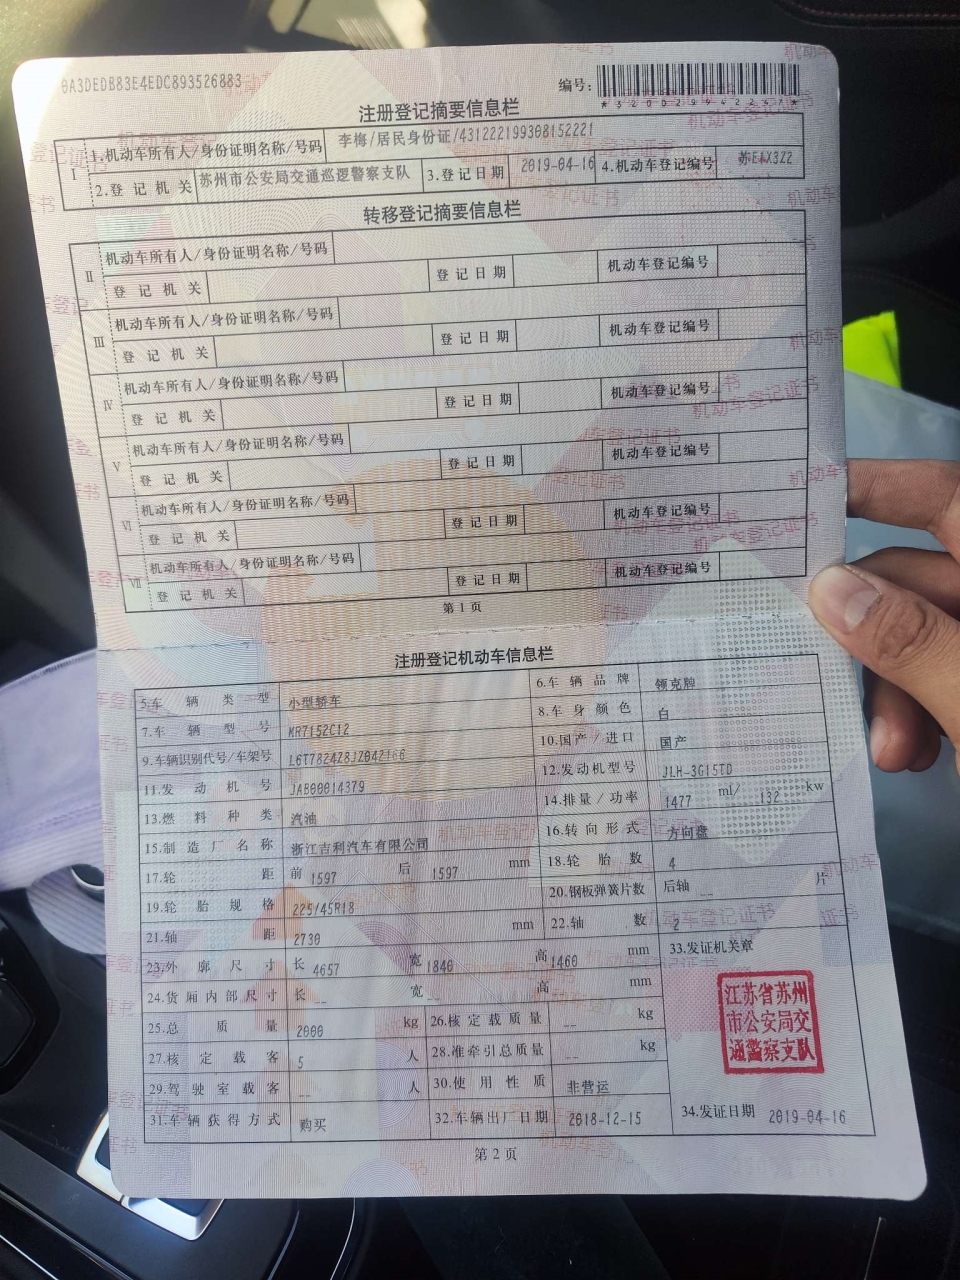 0A3DEDB83E4EDC893526883
编号:
*320029942247*
注册登记摘要信息栏
I 1.机动车所有人/身份证明名称/号码 李梅/居民身份证/431222199308152221
2.登记机关 苏州市公安局交通巡逻警察支队 3.登记日期 2019-04-16 4.机动车登记编号 苏EAX3Z2
转移登记摘要信息栏
II 机动车所有人/身份证明名称/号码
登记机关 登记日期 机动车登记编号
III 机动车所有人/身份证明名称/号码
登记机关 登记日期 机动车登记编号
IV 机动车所有人/身份证明名称/号码
登记机关 登记日期 机动车登记编号
V 机动车所有人/身份证明名称/号码
登记机关 登记日期 机动车登记编号
VI 机动车所有人/身份证明名称/号码
登记机关 登记日期 机动车登记编号
VII 机动车所有人/身份证明名称/号码
登记机关 登记日期 机动车登记编号
第1页
注册登记机动车信息栏
5.车辆类型 小型轿车 6.车辆品牌 领克牌
7.车辆型号 MR7152C12 8.车身颜色 白
9.车辆识别代号/车架号 L6T7824Z8JZ042166 10.国产/进口 国产
11.发动机号 JAB00014379 12.发动机型号 JLH-3G15TD
13.燃料种类 汽油 14.排量/功率 1477 ml/ 132 kw
15.制造厂名称 浙江吉利汽车有限公司 16.转向形式 方向盘
17.轮距 前 1597 后 1597 mm 18.轮胎数 4
19.轮胎规格 225/45R18 20.钢板弹簧片数 后轴 -- 片
21.轴距 2730 mm 22.轴数 2
23.外廓尺寸 长 4657 宽 1840 高 1460 mm 33.发证机关章
24.货厢内部尺寸 长 -- 宽 -- 高 mm
25.总质量 2000 kg 26.核定载质量 -- kg
27.核定载客 5 人 28.准牵引总质量 -- kg
江苏省苏州
市公安局交
通警察支队
29.驾驶室载客 -- 人 30.使用性质 非营运
31.车辆获得方式 购买 32.车辆出厂日期 2018-12-15 34.发证日期 2019-04-16
第2页